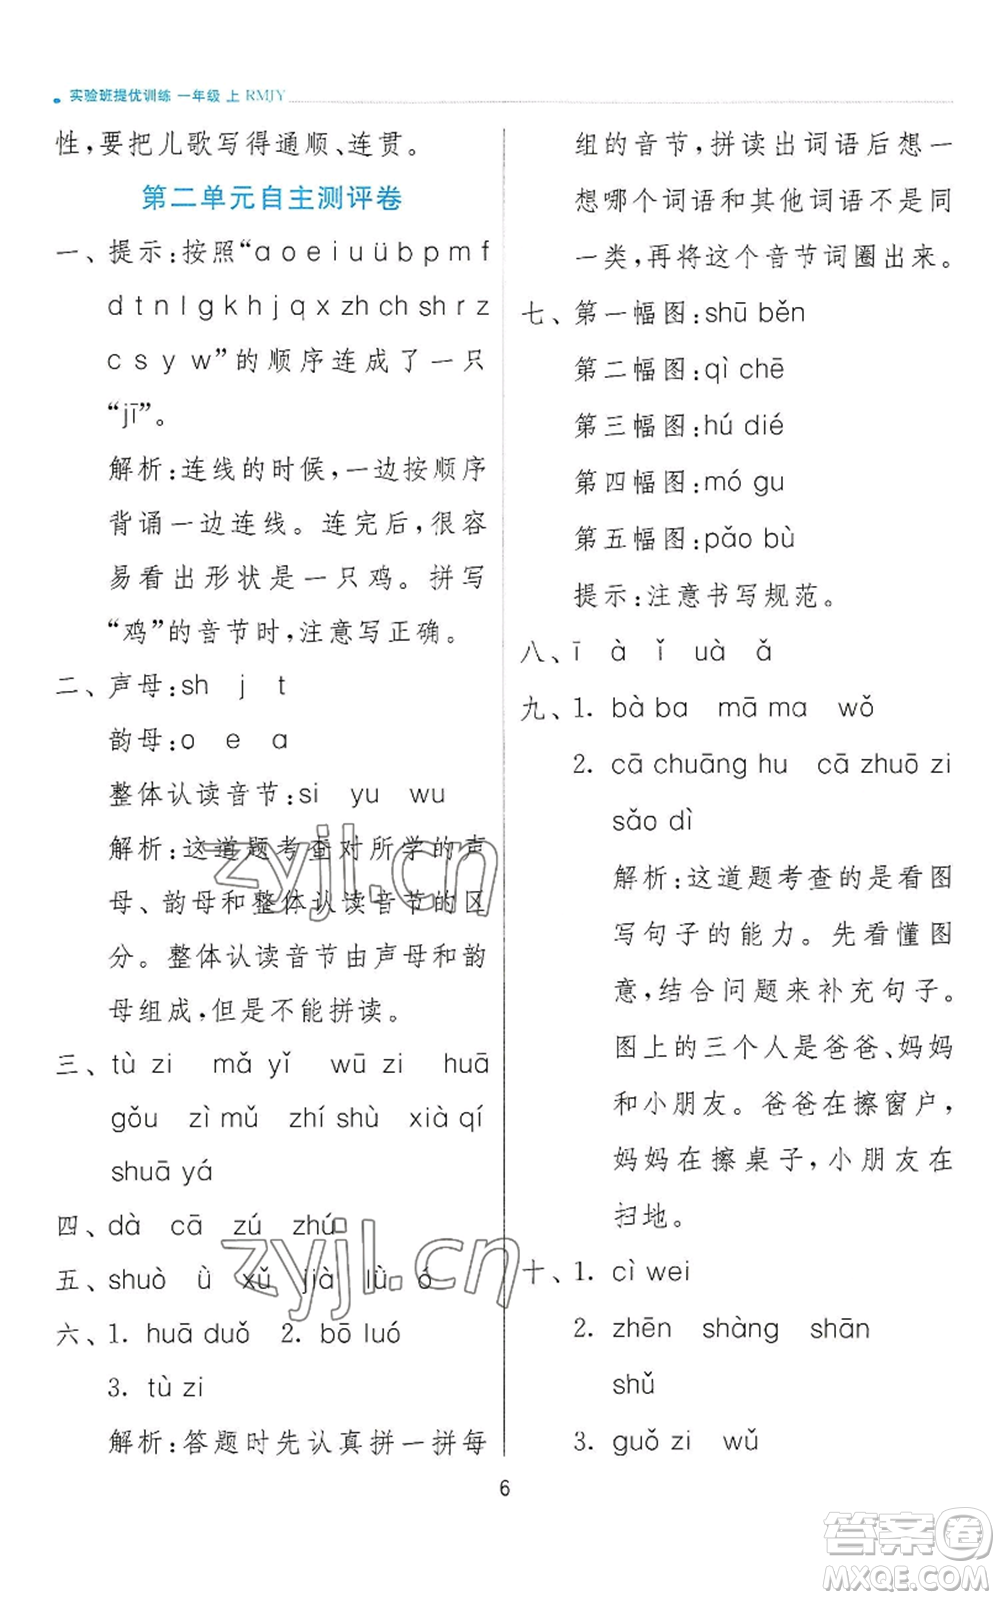 实验班提优训练 一年级 上 RMJY
性,要把儿歌写得通顺、连贯。
第二单元自主测评卷
一、提示:按照“ɑ o e i u ü b p m f
d t n l g k h j q x zh ch sh r z
c s y w”的顺序连成了一只
“jī”。
解析:连线的时候,一边按顺序
背诵一边连线。连完后,很容
易看出形状是一只鸡。拼写
“鸡”的音节时,注意写正确。
二、声母:sh j t
韵母:o e ɑ
整体认读音节:si yu wu
解析:这道题考查对所学的声
母、韵母和整体认读音节的区
分。整体认读音节由声母和韵
母组成,但是不能拼读。
三、tù zi mǎ yǐ wū zi huā
gǒu zì mǔ zhí shù xià qí
shuā yá
四、dà cā zú zhú
五、shuò ǜ xǔ jià lǜ ó
六、1. huā duǒ 2. bō luó
3. tù zi
解析:答题时先认真拼一拼每
组的音节,拼读出词语后想一
想哪个词语和其他词语不是同
一类,再将这个音节词圈出来。
七、第一幅图:shū běn
第二幅图:qì chē
第三幅图:hú dié
第四幅图:mó gu
第五幅图:pǎo bù
提示:注意书写规范。
八、ī à ǐ uà ǎ
九、1. bà ba mā ma wǒ
2. cā chuāng hu cā zhuō zi
sǎo dì
解析:这道题考查的是看图
写句子的能力。先看懂图
意,结合问题来补充句子。
图上的三个人是爸爸、妈妈
和小朋友。爸爸在擦窗户,
妈妈在擦桌子,小朋友在
扫地。
十、1. cì wei
2. zhēn shàng shān
shǔ
3. guǒ zi wǔ
6
zyjl.cn
zyjl.cn
答案卷
MXQE.COM